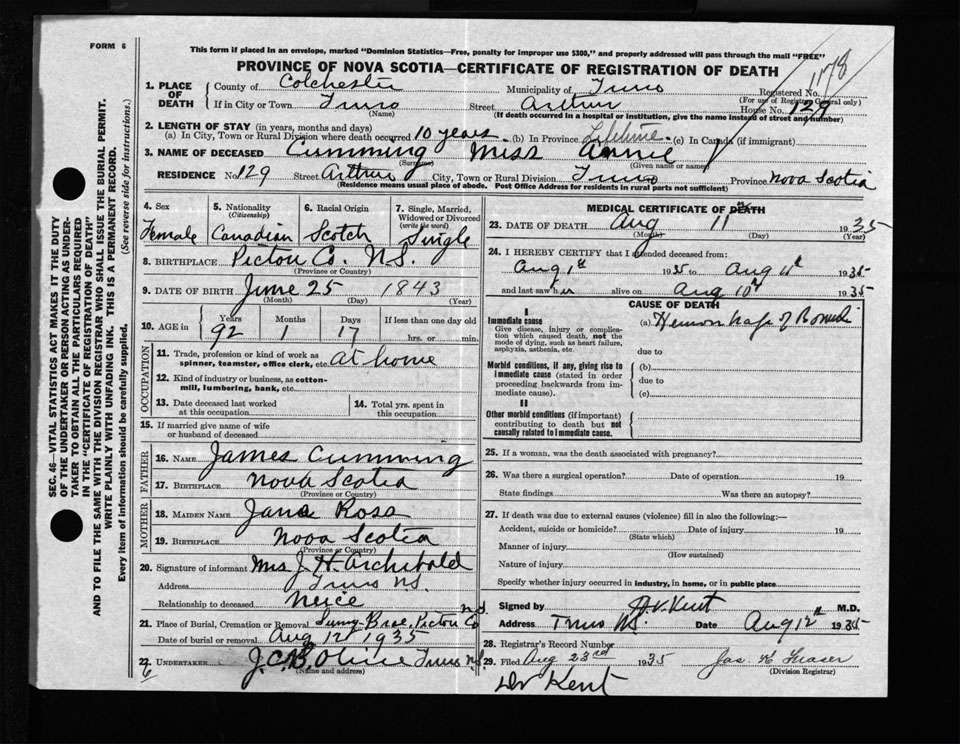 FORM 6
This form if placed in an envelope, marked "Dominion Statistics—Free, penalty for improper use $300," and properly addressed will pass through the mail "FREE"
PROVINCE OF NOVA SCOTIA—CERTIFICATE OF REGISTRATION OF DEATH
1178
Registered No.
(For use of Registrar General only)
1. PLACE OF DEATH
County of Colchester Municipality of Truro
If in City or Town Truro Street Arthur House No. 129
(Name) (If death occurred in a hospital or institution, give the name instead of street and number)
2. LENGTH OF STAY (in years, months and days)
(a) In City, Town or Rural Division where death occurred 10 years (b) In Province Lifetime (c) In Canada (if immigrant)
3. NAME OF DECEASED Cumming Miss Annie
(Surname) (Given name or names)
RESIDENCE No. 129 Street Arthur City, Town or Rural Division Truro Province Nova Scotia
(Residence means usual place of abode. Post Office Address for residents in rural parts not sufficient)
4. Sex 5. Nationality (Citizenship) 6. Racial Origin 7. Single, Married, Widowed or Divorced (write the word)
Female Canadian Scotch Single
8. BIRTHPLACE Pictou Co. N.S.
(Province or Country)
9. DATE OF BIRTH June 25 1843
(Month) (Day) (Year)
10. AGE in Years Months Days If less than one day old
92 1 17 hrs. or min.
OCCUPATION
11. Trade, profession or kind of work as spinner, teamster, office clerk, etc. at home
12. Kind of industry or business, as cotton-mill, lumbering, bank, etc.
13. Date deceased last worked at this occupation
14. Total yrs. spent in this occupation
15. If married give name of wife or husband of deceased
FATHER
16. NAME James Cumming
17. BIRTHPLACE Nova Scotia
(Province or Country)
MOTHER
18. MAIDEN NAME Jane Ross
19. BIRTHPLACE Nova Scotia
(Province or Country)
20. Signature of informant Mrs J. H. Archibald
Address Truro N.S.
Relationship to deceased Neice
21. Place of Burial, Cremation or Removal Sunny Brae, Pictou Co N.S.
Date of burial or removal Aug 12 1935
22. UNDERTAKER J.C.B. Olive Truro N.S.
(Name and address)
6
MEDICAL CERTIFICATE OF DEATH
23. DATE OF DEATH Aug 11th 1935
(Month) (Day) (Year)
24. I HEREBY CERTIFY that I attended deceased from:
Aug 1st 1935 to Aug 11th 1935
and last saw her alive on Aug 10th 1935
CAUSE OF DEATH
I
Immediate cause
Give disease, injury or complication which caused death, not the mode of dying, such as heart failure, asphyxia, asthenia, etc.
(a) of
due to
Morbid conditions, if any, giving rise to immediate cause (stated in order proceeding backwards from immediate cause).
(b)
due to
(c)
II
Other morbid conditions (if important) contributing to death but not causally related to immediate cause.
25. If a woman, was the death associated with pregnancy?
26. Was there a surgical operation? Date of operation 19
State findings Was there an autopsy?
27. If death was due to external causes (violence) fill in also the following:—
Accident, suicide or homicide? Date of injury 19
(State which)
Manner of injury
(How sustained)
Nature of injury
Specify whether injury occurred in industry, in home, or in public place
Signed by Kent M.D.
Address Truro NS. Date Aug 12th 1935
28. Registrar's Record Number
29. Filed Aug 23rd 1935 Jas. K Fraser
(Division Registrar)
Dr Kent
SEC. 46—VITAL STATISTICS ACT MAKES IT THE DUTY
OF THE UNDERTAKER OR PERSON ACTING AS UNDER-
TAKER TO OBTAIN ALL THE PARTICULARS REQUIRED
IN THE "CERTIFICATE OF REGISTRATION OF DEATH"
AND TO FILE THE SAME WITH THE DIVISION REGISTRAR WHO SHALL ISSUE THE BURIAL PERMIT.
WRITE PLAINLY WITH UNFADING INK. THIS IS A PERMANENT RECORD.
Every item of information should be carefully supplied. (See reverse side for instructions.)